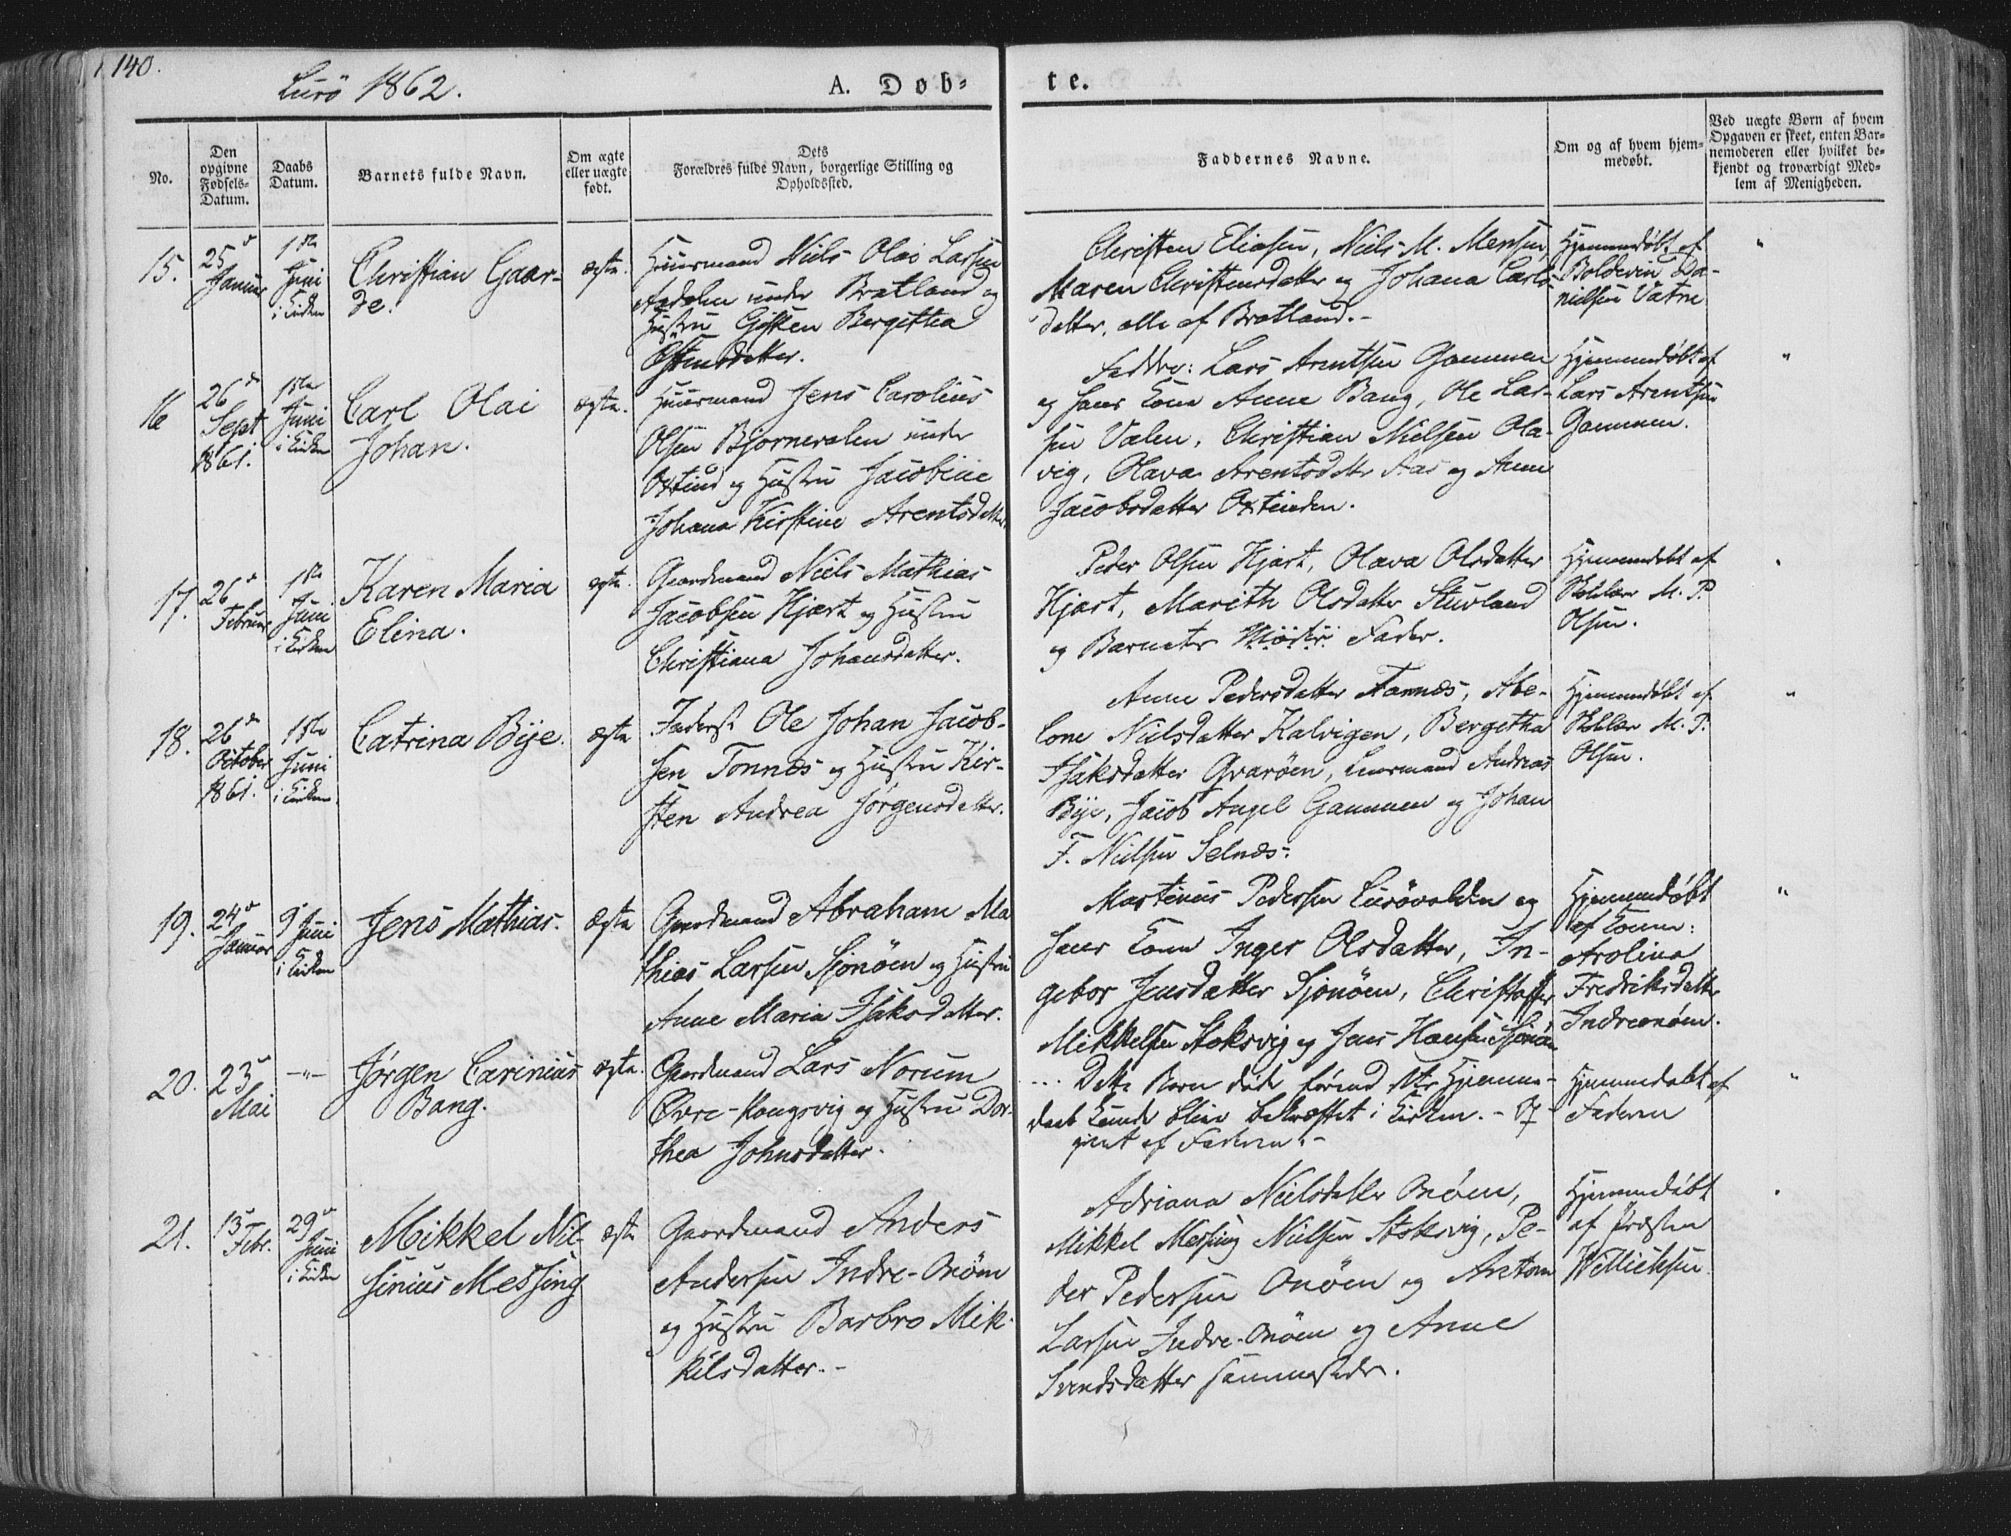 140.
Lurö 1862.
A. Døb-
te.
No.
Den opgivne Fødsels-Datum.
Daabs Datum.
Barnets fulde Navn.
Om ægte eller uægte født.
Dets Forældres fulde Navn, borgerlige Stilling og Opholdssted.
Faddernes Navne.
Om og af hvem hjem-
medøbt.
Ved uægte Børn af hvem
Opgaven er skeet, enten Bar-
nemoderen eller hvilket be-
kjendt og troværdigt Med-
lem af Menigheden.
15.
25
Januar
1ste
Juni
i Kirken
Christian Gaar-
de.
ægte.
Huusmand Niels Olai Larsen
under Bratland og
Hustru Gjsken Bergitha
Østensdatter.
Christen Eliasen, Niels M. Mensen,
Maren Christensdatter og Johana Carls-
datter, alle af Bratland.-
Hjemmedøbt af
Boldevin Da-
nielsen Vatne
"
16
26
Sept
1861.
1ste
Juni
i Kirken
Carl Olai
Johan.
ægte.
Huusmand Jens Carolius
Olsen Bjørnevalen under
Oxtind og Hustru Jacobine
Johana Kirstine Arentsdatter
Faddre: Lars Arentsen Gammen
og hans Kone Anne Bang, Ole Lar-
sen Valen, Christian Nielsen Ola-
vig, Olava Arentsdatter Aas og Anne
Jacobsdatter Oxtinden.
Hjemmedøbt af
Lars Arentsen
Gammen.
"
17.
26
Februar
1ste
Juni
i Kirken
Karen Maria
Elina.
ægte.
Gaardmand Niels Mathias
Jacobsen Hjart og Hustru
Christiana Johansdatter.
Peder Olsen Hjart, Olava Olsdatter
Hjart, Marith Olsdatter Stuvland
og Barnets Moder Fader.
Hjemmedøbt af
Skolelær M. P.
Olsen.
18.
26
October
1861.
1ste
Juni
i Kirken
Catrina Bÿe.
ægte
Inderst Ole Johan Jacob-
sen Tonnes og Hustru Kir-
sten Andrea Jørgensdatter.
Anne Pedersdatter Tonnes, Abe-
lone Nielsdatter Kalvigen, Bergitha
Isaksdatter Qvarøen, Huusmand Andreas
Bÿe, Jacob Angel Gammen og Johan
F. Nielsen Selnæs.
Hjemmedøbt af
Skolelær M. P.
Olsen.
"
19.
24
Januar
9
Juni
i Kirken
Jens Mathias.
ægte
Gaardmand Abraham Ma
thias Larsen Sjonøen og Hustru
Anne Maria Isaksdatter.
Martinus Pedersen Lurövolden og
hans Kone Inger Olsdatter, In-
gebor Jensdatter Sjonöen, Christoffer
Mikkelsen Stoksvig og Jens Hansen Sjonöen
Hjemmedøbt
af Konen:
Arolina
Fredriksdatter
Indreonöen.
"
20.
23
Mai
-"-
Jørgen Carinius
Bang.
ægte.
Gaardmand Lars Norum
Övre-Kongsvig og Hustru Dor-
thea Johnsdatter.
Dette Barn døde förend dets Hjemme-
daab kunde blive bekræftet i Kirken. - Op-
givet af Faderen.-
Hjemmedøbt af
Faderen
"
21.
13
Febr.
29
Juni
i Kirken
Mikkel Nil-
sinius Messing
ægte
Gaardmand Anders
Andersen Indre-Onöen
og Hustru Barbro Mik-
kelsdatter.-
Adriana Nielsdatter Onöen,
Mikkel Messing Nielsen Stoksvig, Pe-
der Pedersen Onöen og Anton
Larsen Indre-Onöen og Anne
Svendsdatter sammesteds.
Hjemmedøbt
af Præsten
Willichsen